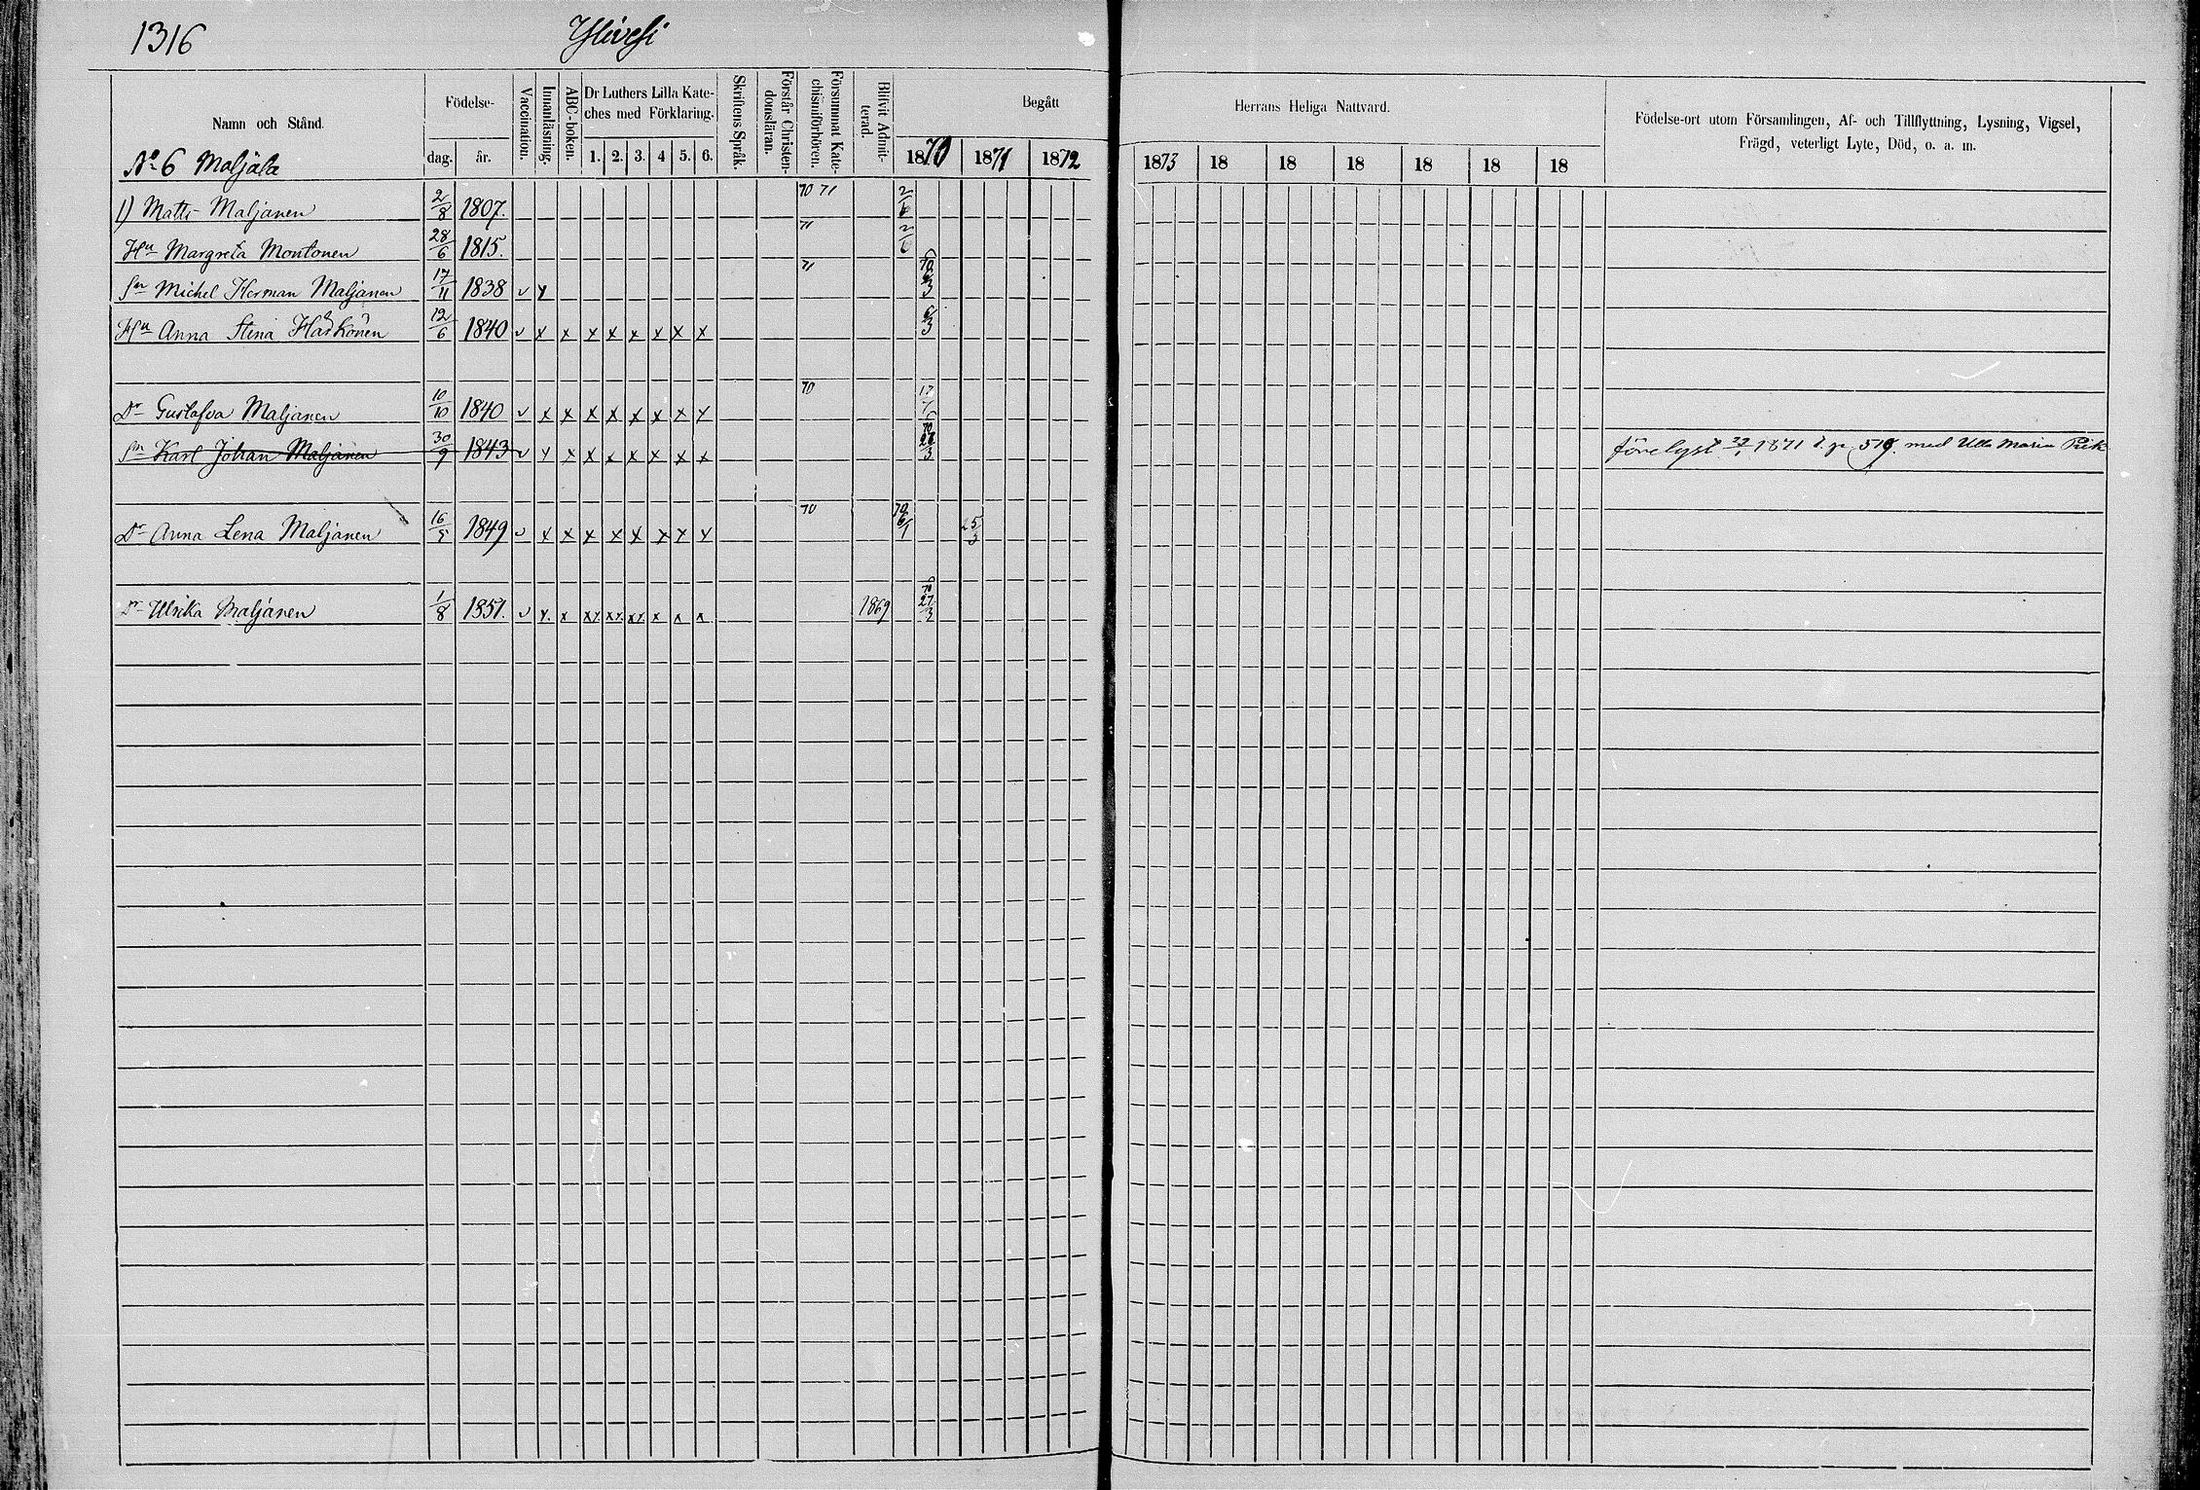 1316
Ylivesi
Namn och Stånd.
Födelse-
dag. år.
Vaccination.
Innanläsning.
ABC-boken.
Dr Luthers Lilla Kate-
ches med Förklaring.
1. 2. 3. 4. 5. 6.
Skriftens Språk.
Förstår Christen-
domsläran.
Försummat Kate-
chismiförhören.
Blifvit Admit-
terad.
Begått
1870 1871 1872
Herrans Heliga Nattvard.
1873 18 18 18 18 18 18
Födelse-ort utom Församlingen, Af- och Tillflyttning, Lysning, Vigsel,
Frägd, veterligt Lyte, Död, o. a. m.
No 6 Maljala
1) Matts Maljanen 2/8 1807. 70 71 2/6
Hu Margreta Montonen 28/6 1815. 71 2/6
Sn Michel Herman Maljanen 17/11 1838 v x 71 70
Hu Anna Stina Härkönen 12/6 1840 v x x x x x x x x 6/3
Dr Gustafva Maljanen 10/10 1840 v x x x x x x x x 70
Sn Karl Johan Maljanen 30/9 1843 v x x x x x x x x 70 27/3 förelyst 1871 t. p. 519. med Ulla Maria
Dr Anna Lena Maljanen 16/5 1849 v x x x x x x x x 70 70 6/1 25/3
Dr Ulrika Maljanen 1/8 1851. v x. x xx xx xx x x x 1869 70 27/3